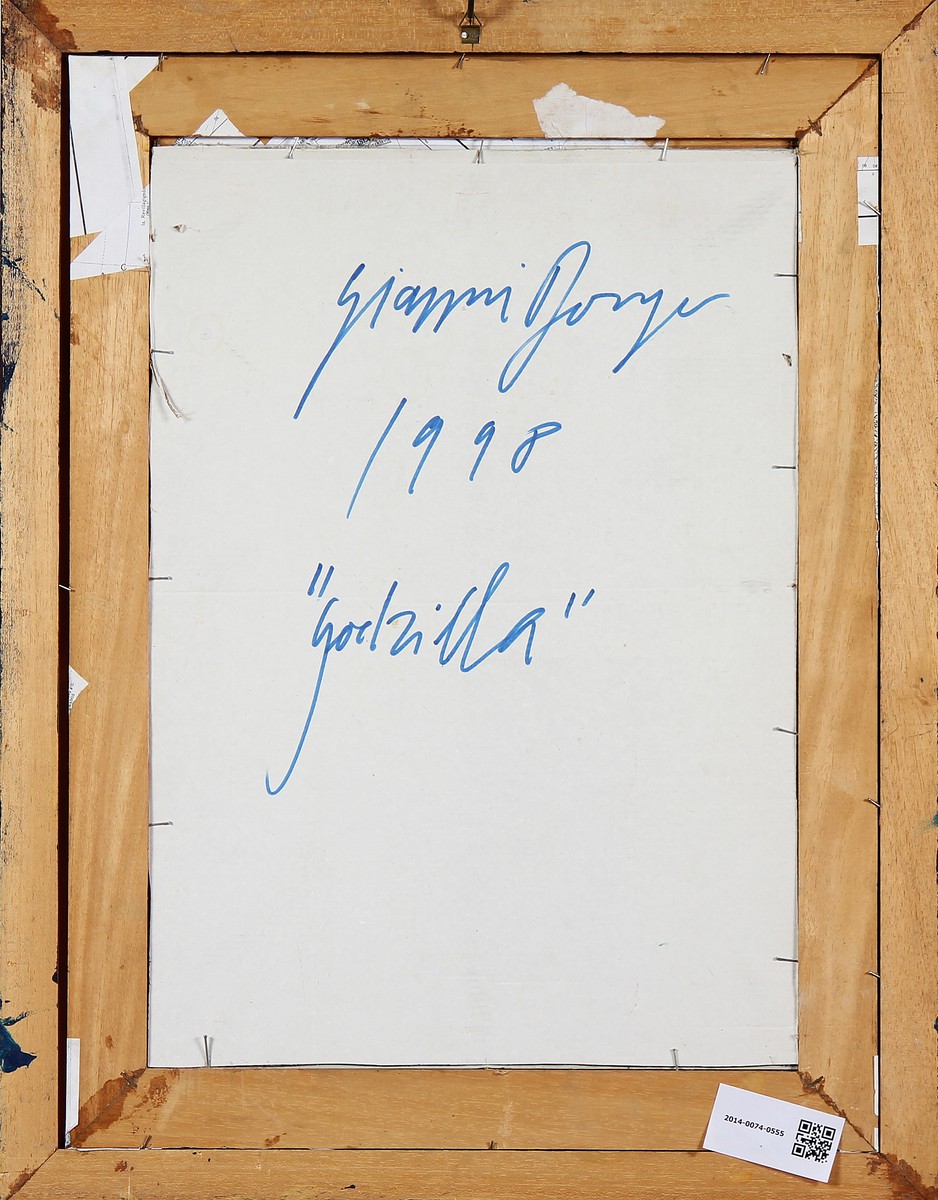 Gianni Dorigo
1998
"Godzilla"
2014-0074-0555